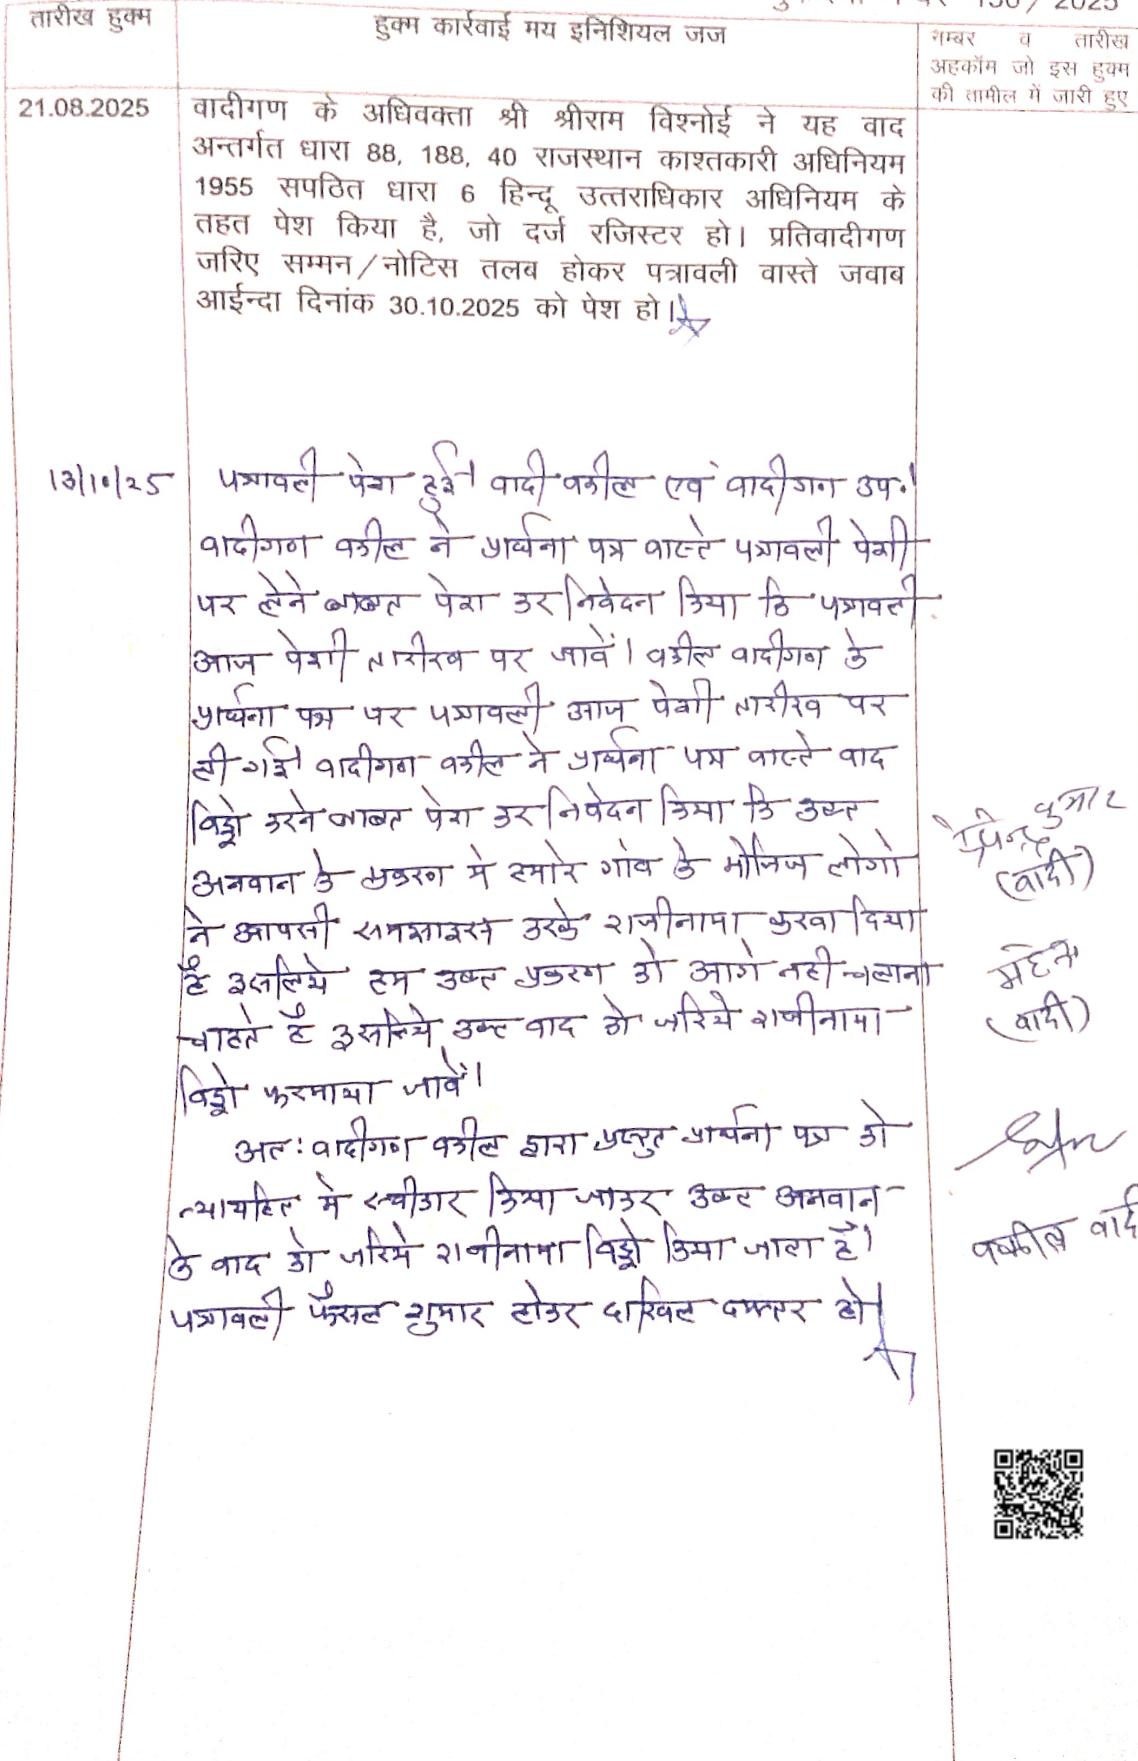 150 / 2025
तारीख हुक्म
हुक्म कार्रवाई मय इनिशियल जज
नम्बर व तारीख
अहकॉम जो इस हुक्म
की तामील में जारी हुए
21.08.2025
वादीगण के अधिवक्ता श्री श्रीराम विश्नोई ने यह वाद
अन्तर्गत धारा 88, 188, 40 राजस्थान काश्तकारी अधिनियम
1955 सपठित धारा 6 हिन्दू उत्तराधिकार अधिनियम के
तहत पेश किया है, जो दर्ज रजिस्टर हो। प्रतिवादीगण
जरिए सम्मन/नोटिस तलब होकर पत्रावली वास्ते जवाब
आईन्दा दिनांक 30.10.2025 को पेश हो।
13/10/25
पत्रावली पेश हुई। वादी वकील एवं वादीगण उप.।
वादीगण वकील ने प्रार्थना पत्र वास्ते पत्रावली पेशी
पर लेने बाबत पेश कर निवेदन किया कि पत्रावली
आज पेशी तारीख पर जावें। वकील वादीगण के
प्रार्थना पत्र पर पत्रावली आज पेशी तारीख पर
ली गई। वादीगण वकील ने प्रार्थना पत्र वास्ते वाद
विड्रो करने बाबत पेश कर निवेदन किया कि उक्त
अनवान के प्रकरण मे हमारे गांव के मौजिज लोगो
ने आपसी समझाइस करके राजीनामा करवा दिया
है इसलिये हम उक्त प्रकरण को आगे नही चलाना
चाहते है इसलिये उक्त वाद को जरिये राजीनामा
विड्रो फरमाया जावें।
अतः वादीगण वकील द्वारा प्रस्तुत प्रार्थना पत्र को
न्यायहित मे स्वीकार किया जाकर उक्त अनवान
के वाद को जरिये राजीनामा विड्रो किया जाता है।
पत्रावली फैसल शुमार होकर दाखिल दफ्तर हो।
कुमार
(वादी)
(वादी)
वकील वादी